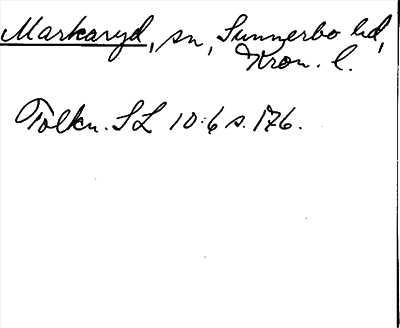 Markaryd, sn, Sunnerbo hd,
Kron. l.
Tolkn. SL 10:6 s. 176.